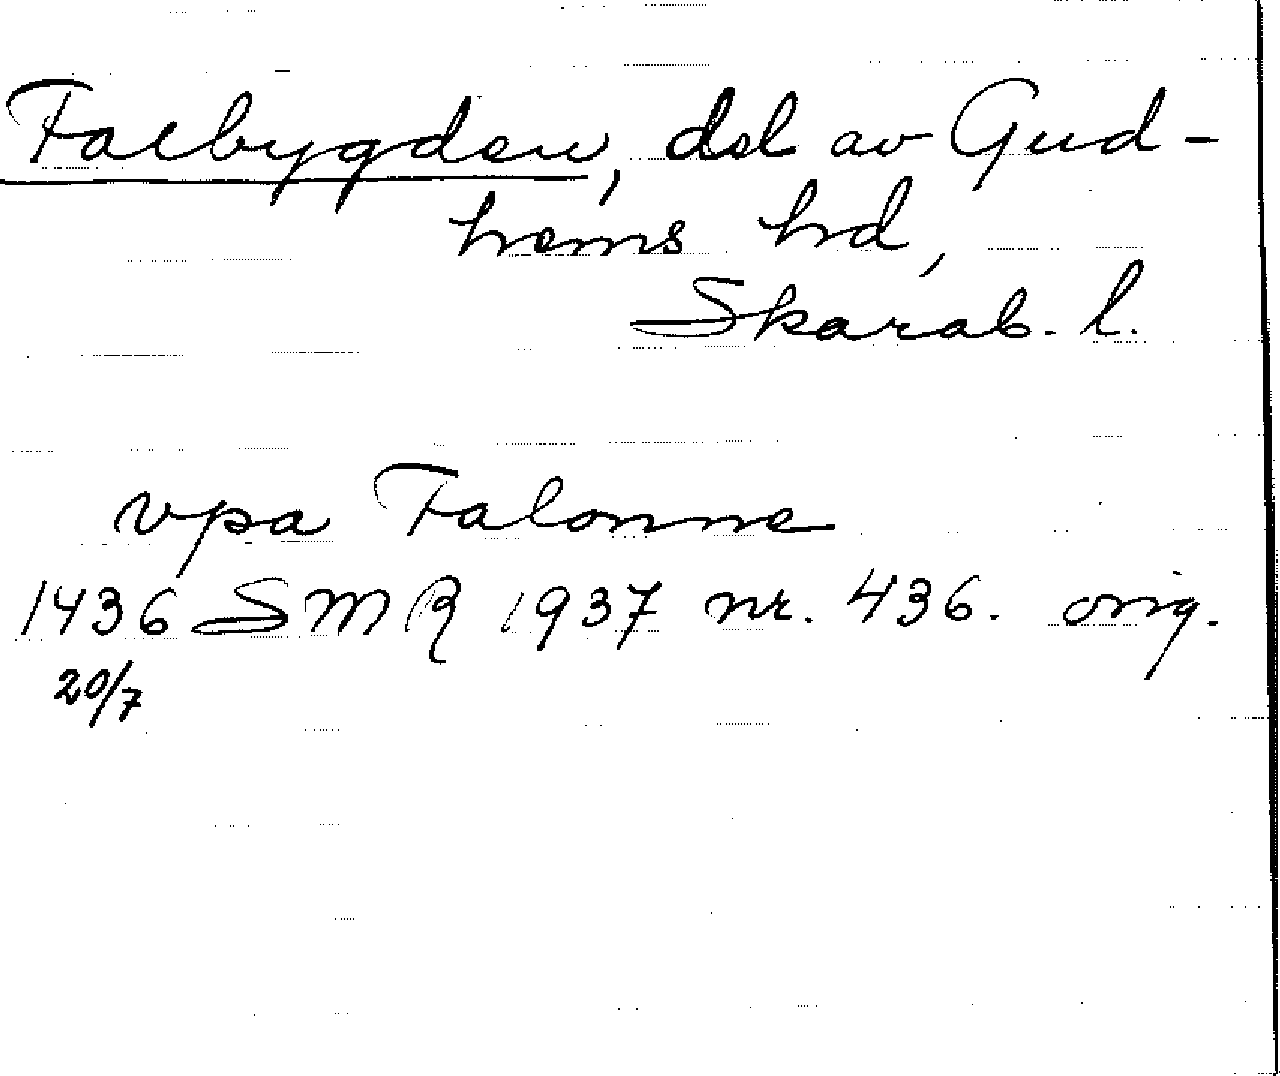 Falbygden, del av Gud-
hems hd,
Skarab. l.
vpa Falonne
1436 SMR 1937 nr. 436. orig.
20/7